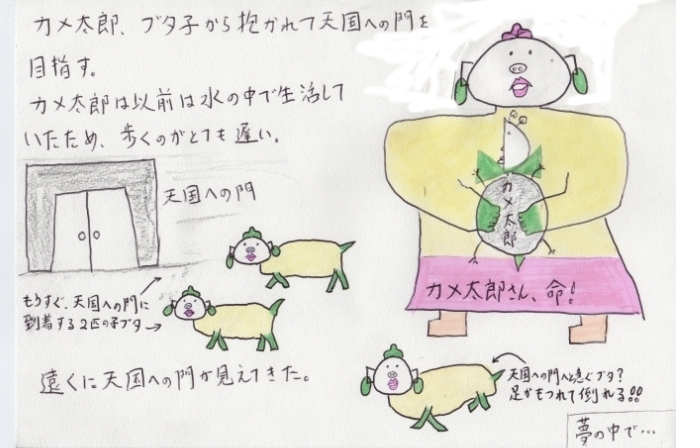 カメ太郎、ブタ子から抱かれて天国への門を
目指す。
カメ太郎は以前は水の中で生活して
いたため、歩くのがとても遅い。
天国への門
カメ太郎
カメ太郎さん、命!
もうすぐ、天国への門に
到着する2匹の子ブタ
遠くに天国への門が見えてきた。
天国への門へと急ぐブタ?
足がもつれて倒れる!!
夢の中で…